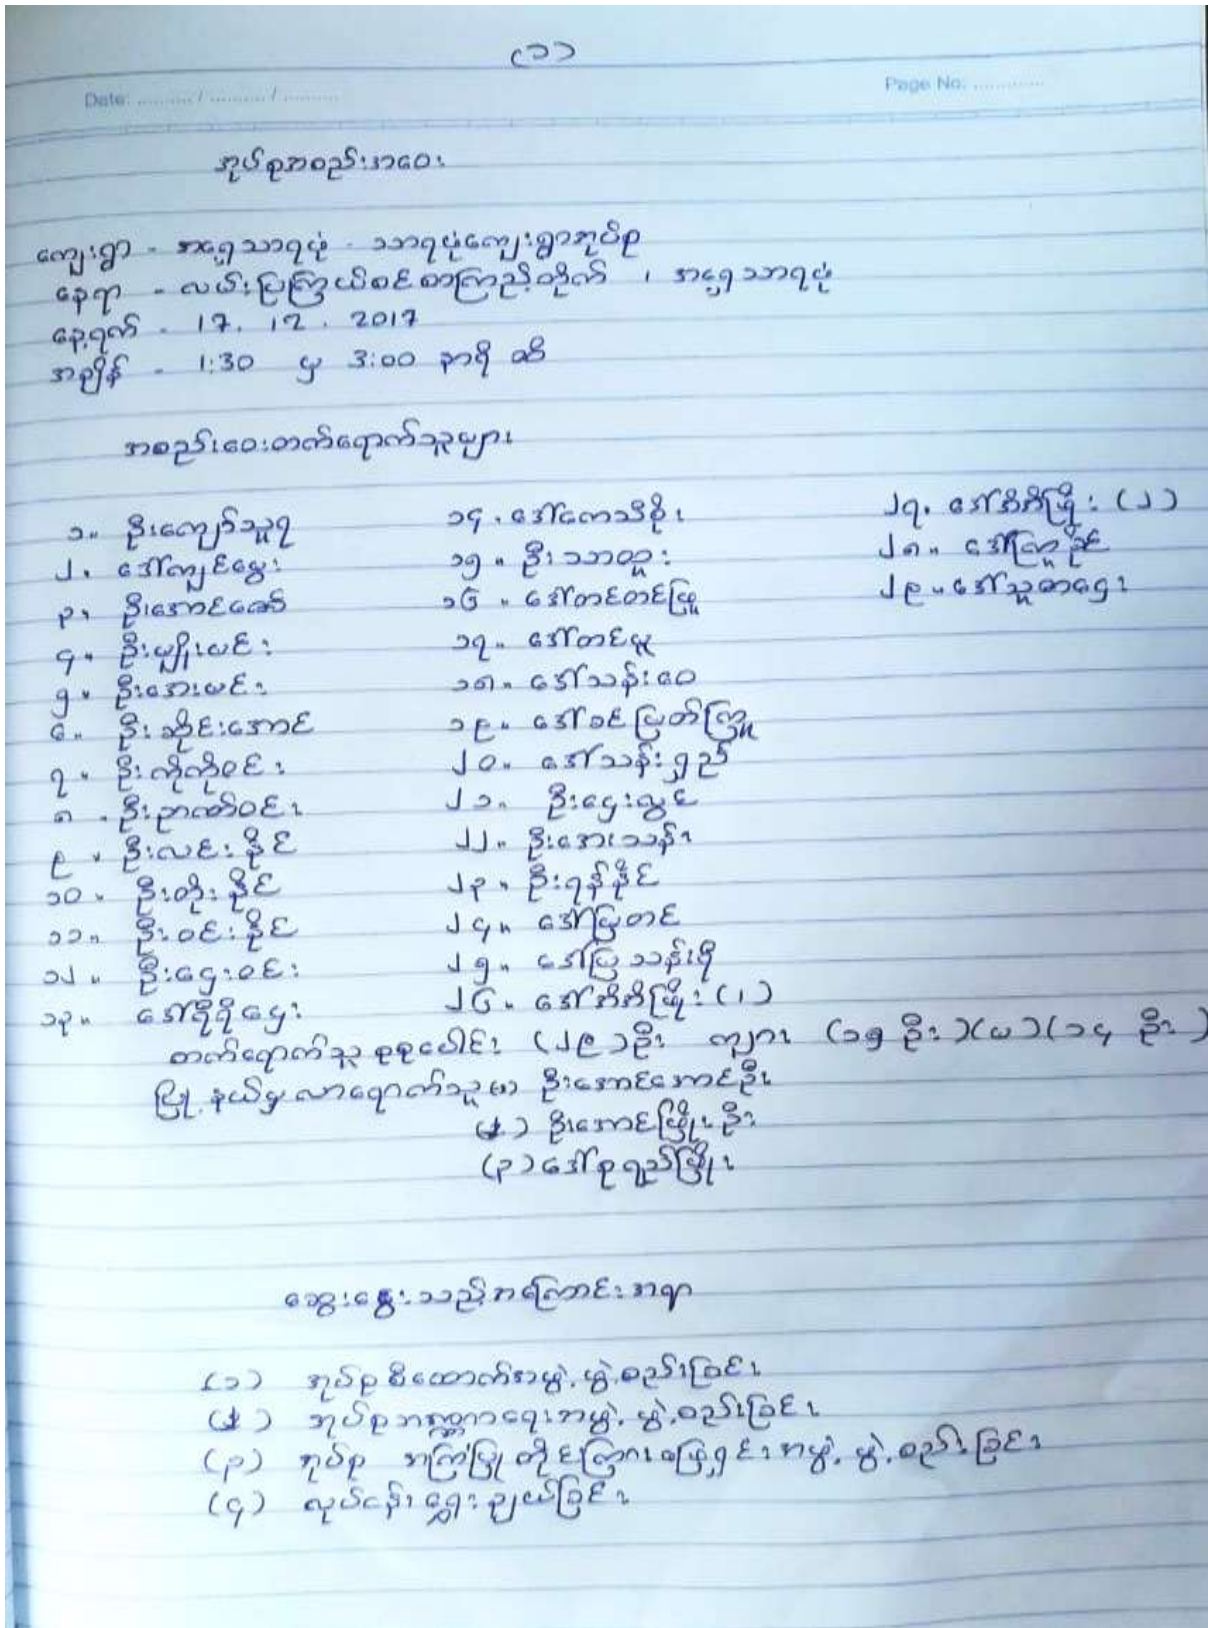 (၁)
Date: ........../ ........../ ..........
Page No. ............
အုပ်စုအစည်းအဝေး
ကျေးရွာ - အရှေ့သာရပုံ - သာရပုံကျေးရွာအုပ်စု
နေရာ - လမ်းပြကြယ်စင်စာကြည့်တိုက် ၊ အရှေ့သာရပုံ
နေ့ရက် - 17. 12. 2017
အချိန် - 1:30 မှ 3:00 နာရီ ထိ
အစည်းဝေးတက်ရောက်သူများ
၁။ ဦးကျော်သူရ
၂။ ဒေါ်ကျင်မွှေး
၃။ ဦးအောင်ဇော်
၄။ ဦးမျိုးမင်း
၅။ ဦးအေးမင်း
၆။ ဦးဆိုင်းအောင်
၇။ ဦးကိုကိုဝင်း
၈။ ဦးဉာဏ်ဝင်း
၉။ ဦးလင်းနိုင်
၁၀။ ဦးတိုးနိုင်
၁၁။ ဦးဝင်းနိုင်
၁၂။ ဦးဌေးဝင်း
၁၃။ ဒေါ်ရီရီဌေး
၁၄. ဒေါ်ကေသီစိုး
၁၅။ ဦးသာထူး
၁၆။ ဒေါ်တင်တင်ဖြူ
၁၇။ ဒေါ်တင်မူ
၁၈။ ဒေါ်သန်းဝေ
၁၉။ ဒေါ်ခင်မြတ်ကြူ
၂၀။ ဒေါ်သန်းရှည်
၂၁။ ဦးဌေးလွင်
၂၂။ ဦးအေးသန်း
၂၃။ ဦးရန်နိုင်
၂၄။ ဒေါ်မြတင်
၂၅။ ဒေါ်မြသန်းရီ
၂၆။ ဒေါ်အိအိဖြိုး (၁)
၂၇. ဒေါ်အိအိဖြိုး (၂)
၂၈။ ဒေါ်ကြူခိုင်
၂၉။ ဒေါ်သူဇာဌေး
တက်ရောက်သူ စုစုပေါင်း (၂၉)ဦး ကျား (၁၅ ဦး)(မ)(၁၄ ဦး)
မြို့နယ်မှ လာရောက်သူ (၁) ဦးအောင်အောင်ဦး
(၂) ဦးအောင်ဖြိုးဦး
(၃) ဒေါ်စုရည်ဖြိုး
ဆွေးနွေးသည့်အကြောင်းအရာ
(၁) အုပ်စုစီထောက်အဖွဲ့ ဖွဲ့စည်းခြင်း
(၂) အုပ်စုဘဏ္ဍာရေးအဖွဲ့ ဖွဲ့စည်းခြင်း
(၃) အုပ်စု အကြံပြု တိုင်ကြားဖြေရှင်းအဖွဲ့ ဖွဲ့စည်းခြင်း
(၄) လုပ်ငန်းရွေးချယ်ခြင်း